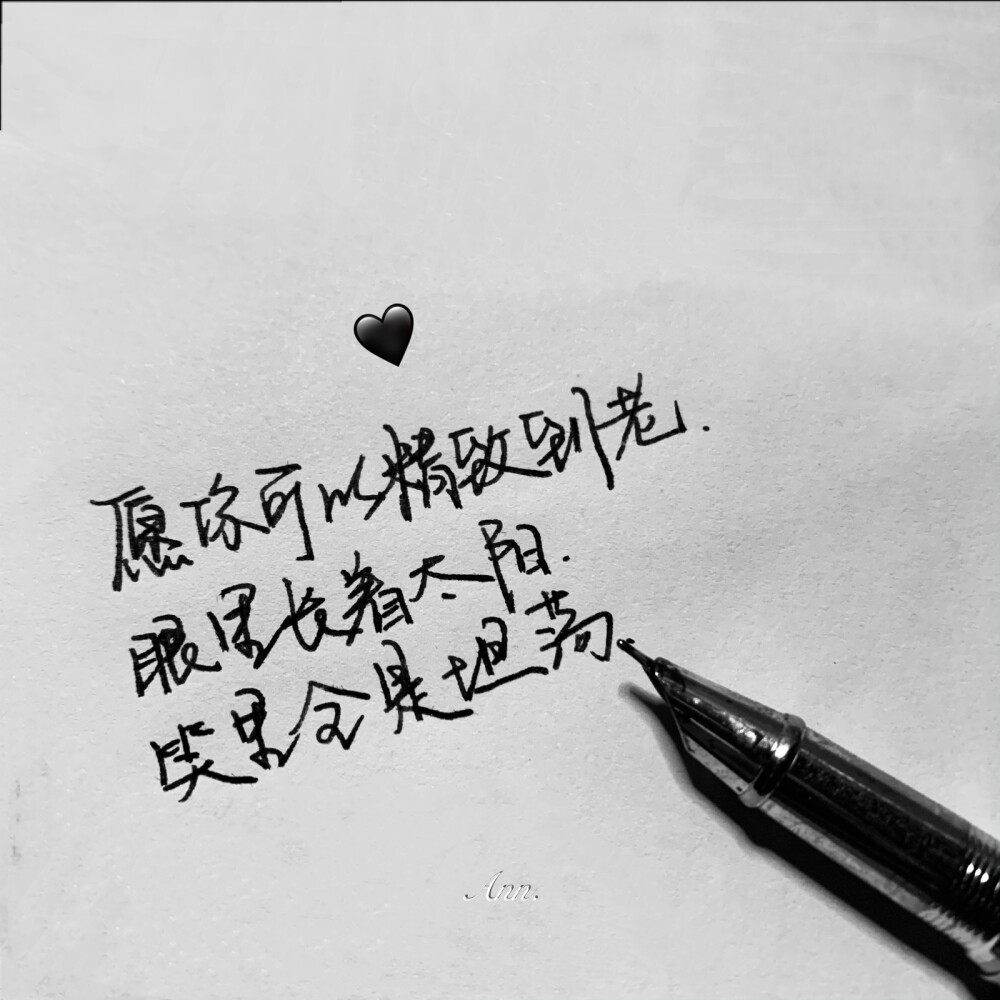 愿你可以精致到老.
眼里长着太阳.
笑里全是坦荡.
Ann.